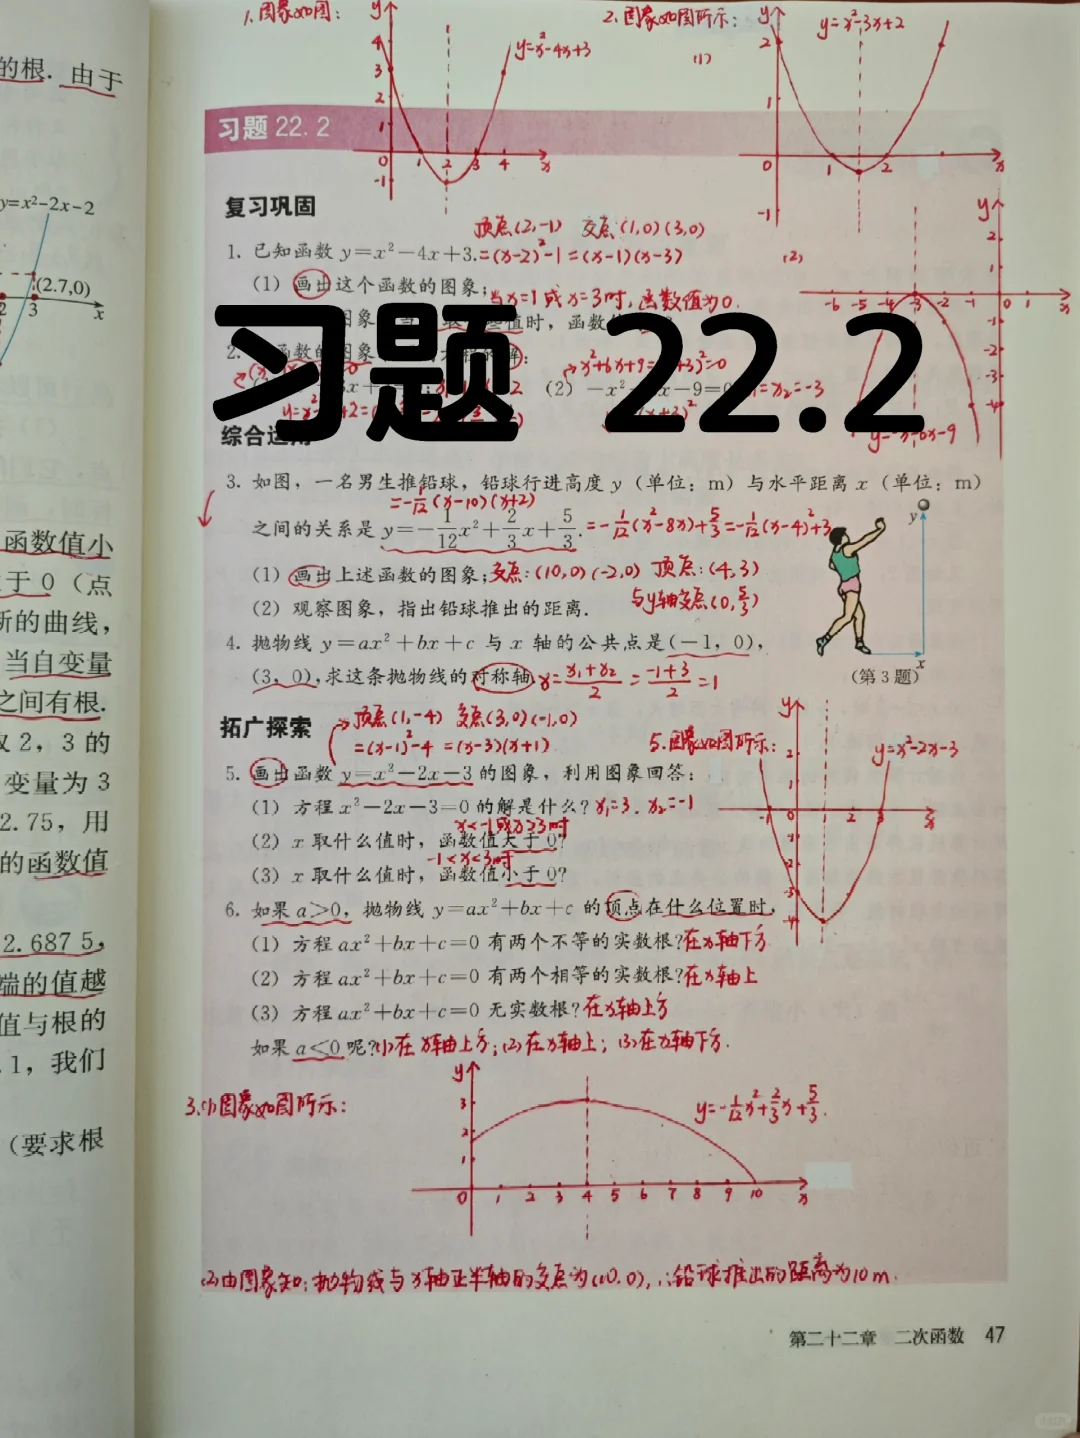 的根. 由于
y=x²-2x-2
(2.7,0)
2 3 x
函数值小
于 0 (点
新的曲线,
当自变量
之间有根.
2, 3 的
变量为 3
2.75, 用
的函数值
2.687 5,
端的值越
值与根的
.1, 我们
(要求根
1.图象如图:
y=x²-4x+3
2.图象如图所示:
(1)
y=x²-3x+2
习题 22.2
复习巩固
顶点(2,-1) 交点(1,0)(3,0)
1. 已知函数 y=x²-4x+3.=(x-2)²-1=(x-1)(x-3)
(2)
(1) 画出这个函数的图象;
当x=1或x=3时,函数值为0.
习题 22.2
综合运用
3. 如图, 一名男生推铅球, 铅球行进高度 y (单位: m) 与水平距离 x (单位: m)
=-1/12(x-10)(x+2)
之间的关系是 y=-1/12x²+2/3x+5/3.=-1/12(x²-8x)+5/3=-1/12(x-4)²+3
(1) 画出上述函数的图象;交点:(10,0)(-2,0) 顶点:(4,3)
与y轴交点(0,5/3)
(2) 观察图象, 指出铅球推出的距离.
4. 抛物线 y=ax²+bx+c 与 x 轴的公共点是(-1, 0),
(3, 0), 求这条抛物线的对称轴. x=(x₁+x₂)/2=(-1+3)/2=1
(第 3 题)
拓广探索
顶点(1,-4) 交点(3,0)(-1,0)
=(x-1)²-4 =(x-3)(x+1)
5.图象如图所示:
y=x²-2x-3
5. 画出函数 y=x²-2x-3 的图象, 利用图象回答:
(1) 方程 x²-2x-3=0 的解是什么? x₁=3. x₂=-1
x<-1或x>3时
(2) x 取什么值时, 函数值大于 0?
-1<x<3时
(3) x 取什么值时, 函数值小于 0?
6. 如果 a>0, 抛物线 y=ax²+bx+c 的顶点在什么位置时,
(1) 方程 ax²+bx+c=0 有两个不等的实数根?在x轴下方
(2) 方程 ax²+bx+c=0 有两个相等的实数根?在x轴上
(3) 方程 ax²+bx+c=0 无实数根?在x轴上方
如果 a<0 呢?(1)在x轴上方;(2)在x轴上;(3)在x轴下方.
3.(1)图象如图所示:
y=-1/12x²+2/3x+5/3.
(2)由图象知:抛物线与x轴正半轴的交点为(10,0),∴铅球推出的距离为10m.
第二十二章 二次函数 47